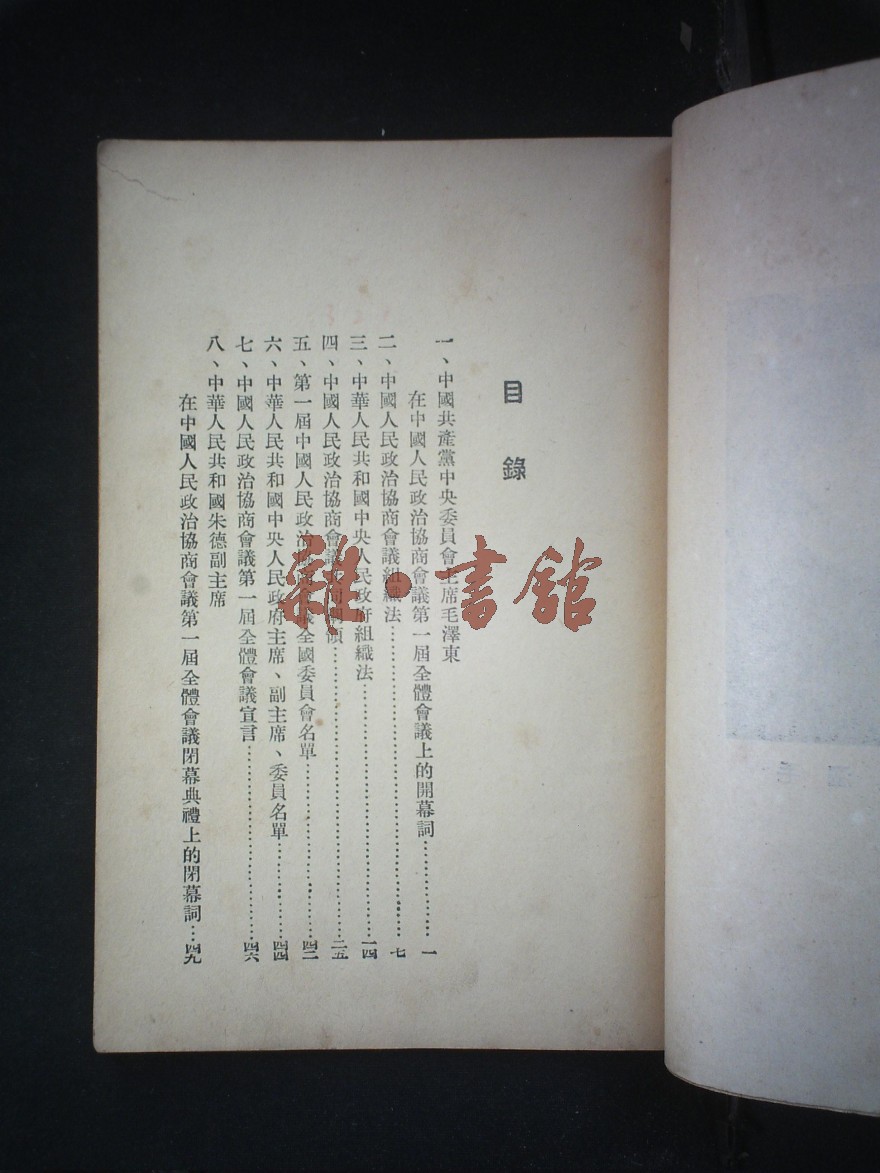 目錄
一、中國共產黨中央委員會主席毛澤東
在中國人民政治協商會議第一屆全體會議上的開幕詞………………一
二、中國人民政治協商會議組織法………………七
三、中華人民共和國中央人民政府組織法………………一四
四、中國人民政治協商會議共同綱領………………二五
五、第一屆中國人民政治協商會議全國委員會名單………………四二
六、中華人民共和國中央人民政府主席、副主席、委員名單………………四四
七、中國人民政治協商會議第一屆全體會議宣言………………四六
八、中華人民共和國朱德副主席
在中國人民政治協商會議第一屆全體會議閉幕典禮上的閉幕詞…四九
雜·書館